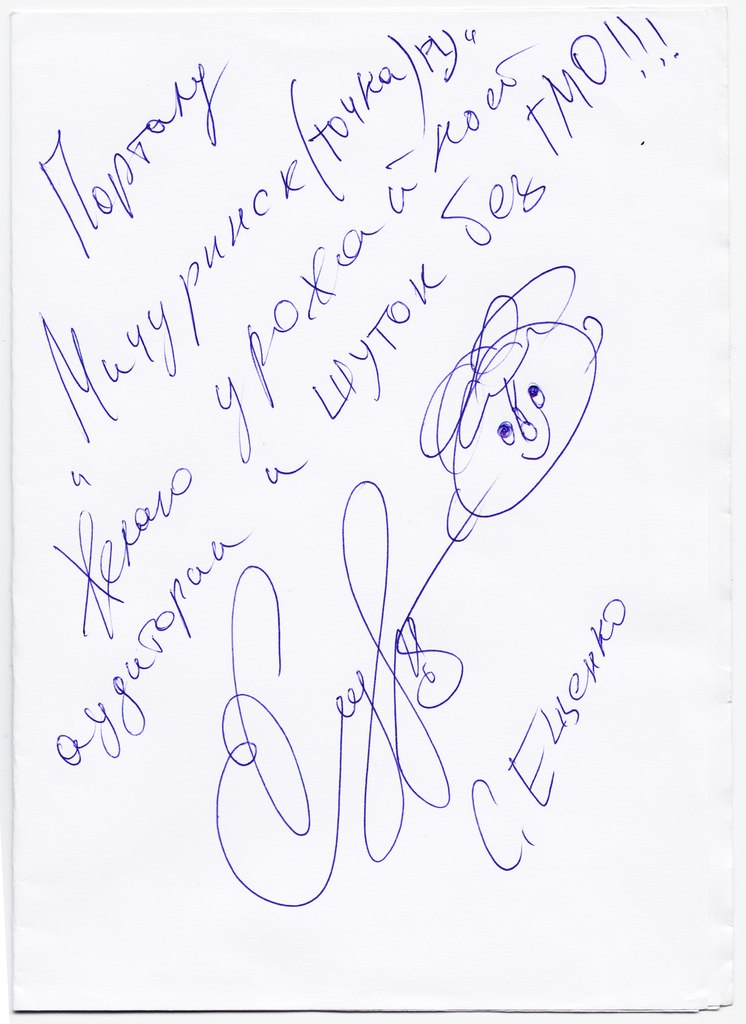 Порталу
"Мичуринск(точка)ру"
Желаю урожайной
аудитории и шуток без ГМО!!!
С. Ещенко